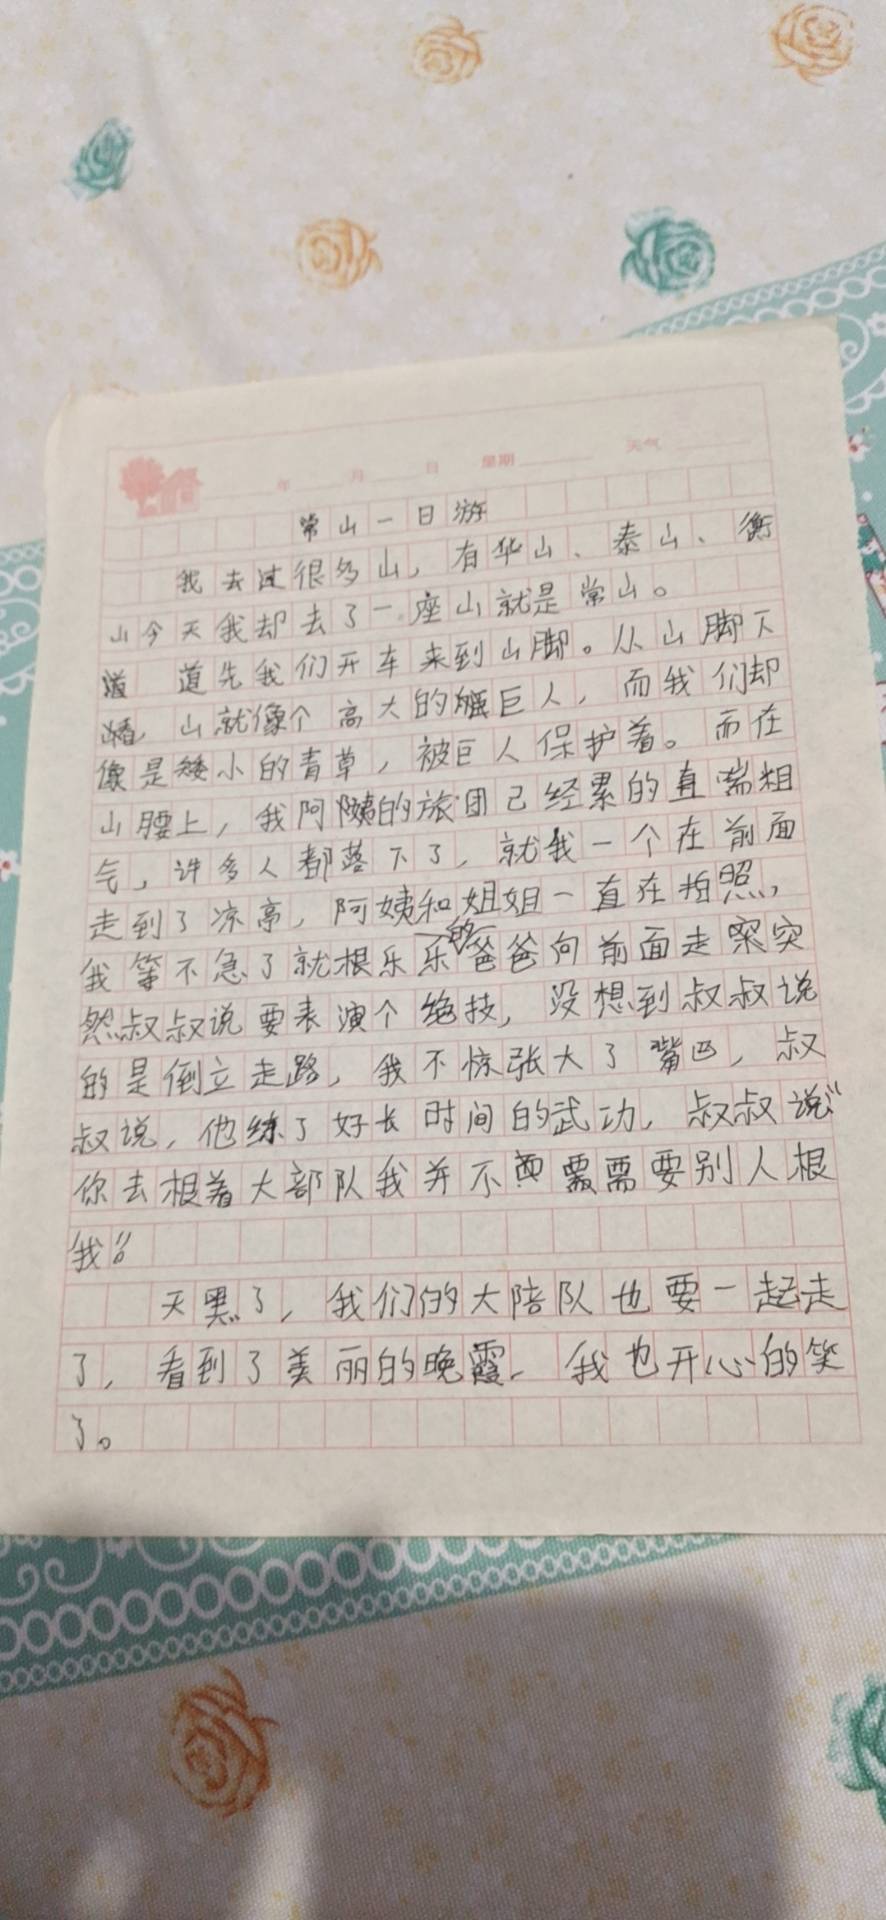 年 月 日 星期 天气
常山一日游
我去过很多山，有华山、泰山、衡
山今天我却去了一座山就是常山。
道先我们开车来到山脚。从山脚下
山就像个高大的巨人，而我们却
像是矮小的青草，被巨人保护着。而在
山腰上，我阿姨的旅团已经累的直喘粗
气，许多人都落下了，就我一个在前面
走到了凉亭，阿姨和姐姐一直在拍照，
我等不急了就根乐乐的爸爸向前面走突
然叔叔说要表演个绝技，没想到叔叔说
的是倒立走路，我不惊张大了嘴巴，叔
叔说，他练了好长时间的武功，叔叔说“
你去根着大部队我并不需需要别人根
我”。
天黑了，我们的大陪队也要一起走
了，看到了美丽的晚霞，我也开心的笑
了。